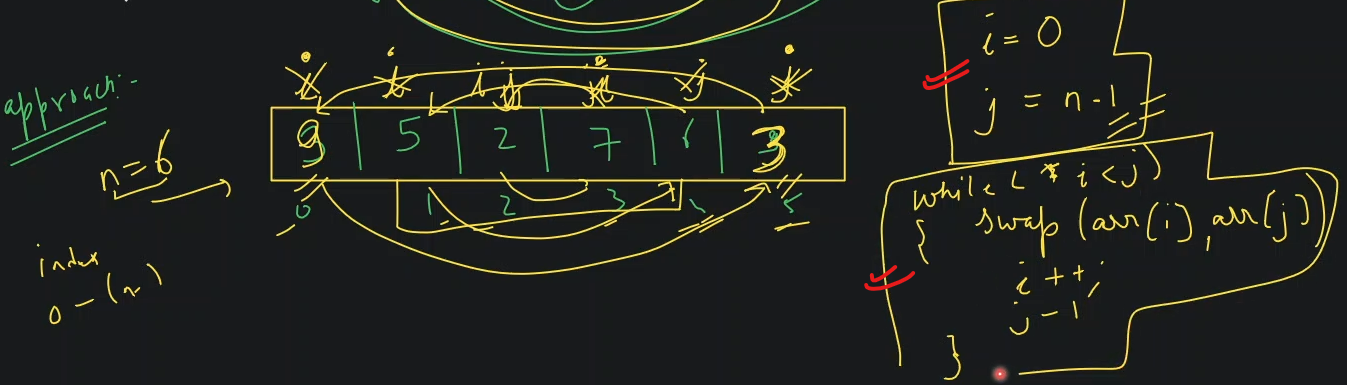 approach:-
n=6
index
0-(n)
i i i j j i j j
9 5 2 7 6 3
0 1 2 3 4 5
i = 0
j = n-1
while ( i < j )
{ swap (arr[i], arr[j])
i++;
j-1
}